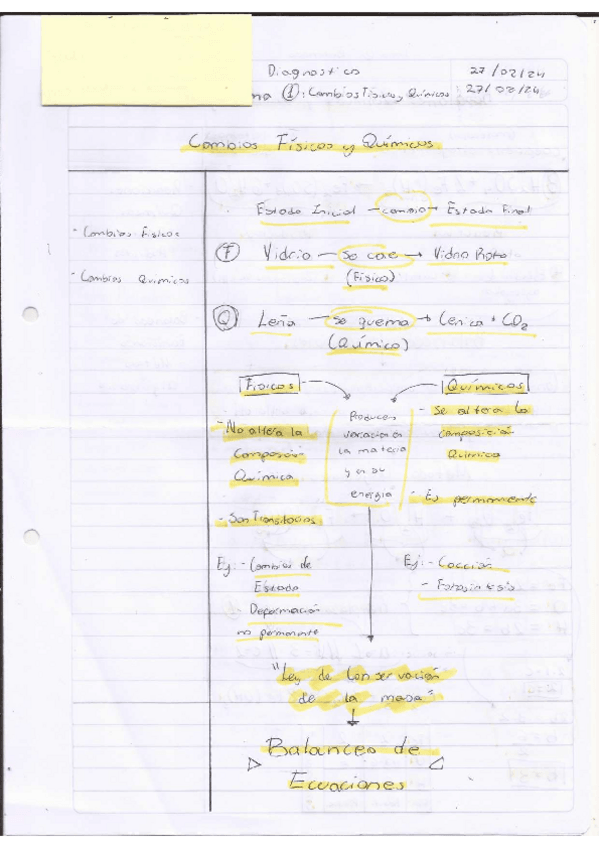 Diagnostico 27/02/24
ma ①: Cambios Físicos y Químicos 27/02/24
Cambios Físicos y Químicos
- Cambios Físicos
- Cambios Químicos
Estado Inicial — cambio → Estado Final
Ⓕ Vidrio — se cae → Vidrio Roto
(Físico)
Ⓠ Leña — se quema → Ceniza + CO₂
(Químico)
Físicos
- No altera la
Composición
Química
- Son Transitorios
Ej: - Cambios de
Estado
Deformación
no permanente
Producen
variación en
la materia
y en su
energía
Químicos
- Se altera la
composición
Química
- Es permanente
Ej: - Cocción
- Fotosíntesis
"Ley de Conservación
de la masa"
Balanceo de
Ecuaciones